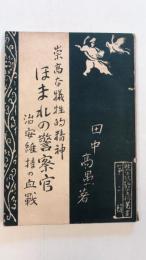 崇高な犠牲的精神
ほまれの警察官
治安維持の血戦
田中高愚著